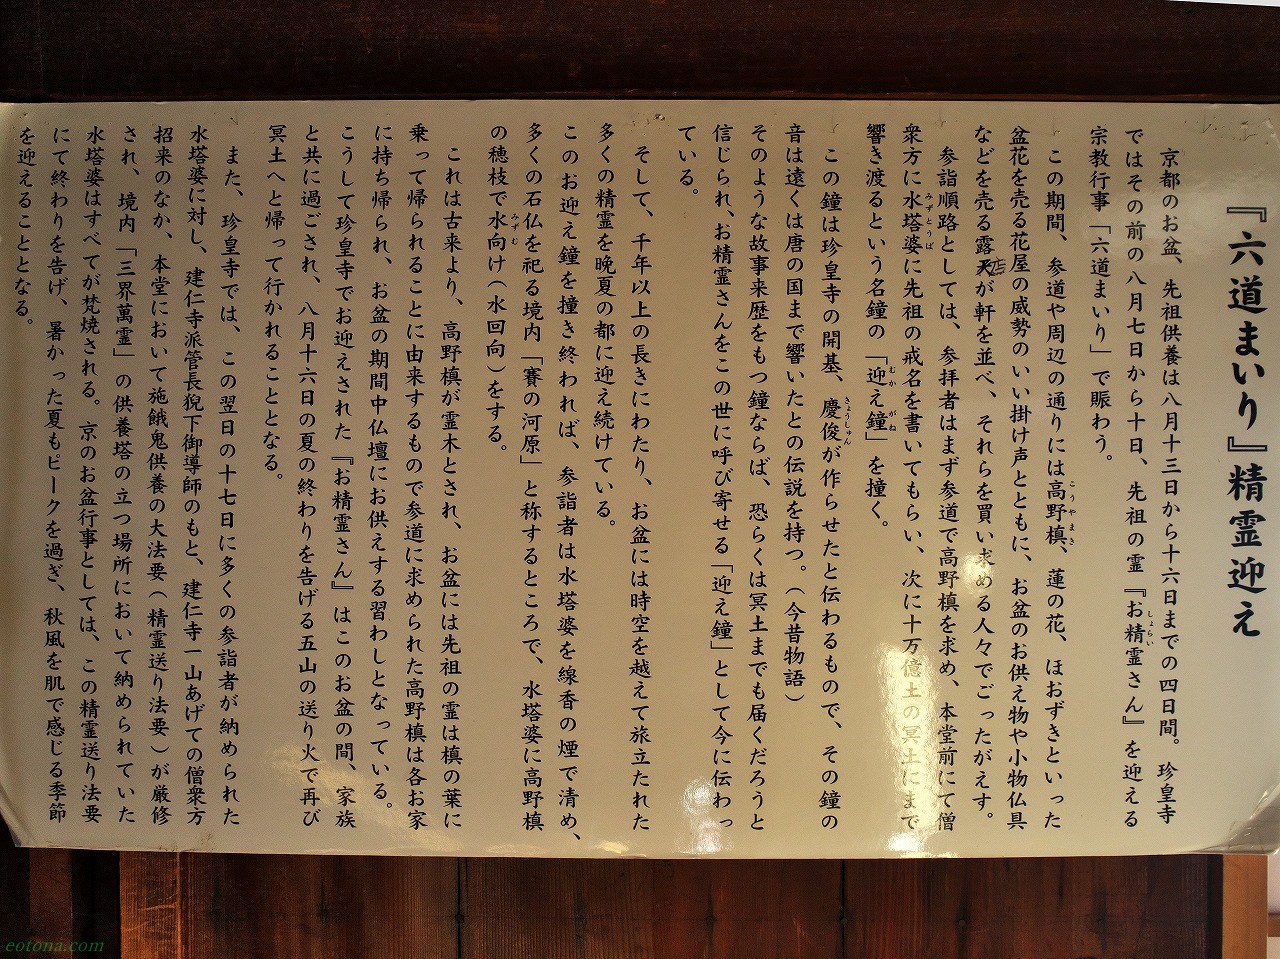 『六道まいり』精霊迎え
京都のお盆、先祖供養は八月十三日から十六日までの四日間。珍皇寺
ではその前の八月七日から十日、先祖の霊『お精霊さん』を迎える
宗教行事「六道まいり」で賑わう。
この期間、参道や周辺の通りには高野槙、蓮の花、ほおずきといった
盆花を売る花屋の威勢のいい掛け声とともに、お盆のお供え物や小物仏具
などを売る露店が軒を並べ、それらを買い求める人々でごったがえす。
参詣順路としては、参拝者はまず参道で高野槙を求め、本堂前にて僧
衆方に水塔婆に先祖の戒名を書いてもらい、次に十万億土の冥土にまで
響き渡るという名鐘の「迎え鐘」を撞く。
この鐘は珍皇寺の開基、慶俊が作らせたと伝わるもので、その鐘の
音は遠くは唐の国まで響いたとの伝説を持つ。（今昔物語）
そのような故事来歴をもつ鐘ならば、恐らくは冥土までも届くだろうと
信じられ、お精霊さんをこの世に呼び寄せる「迎え鐘」として今に伝わっ
ている。
そして、千年以上の長きにわたり、お盆には時空を越えて旅立たれた
多くの精霊を晩夏の都に迎え続けている。
このお迎え鐘を撞き終われば、参詣者は水塔婆を線香の煙で清め、
多くの石仏を祀る境内「賽の河原」と称するところで、水塔婆に高野槙
の穂枝で水向け（水回向）をする。
これは古来より、高野槙が霊木とされ、お盆には先祖の霊は槙の葉に
乗って帰られることに由来するもので参道に求められた高野槙は各お家
に持ち帰られ、お盆の期間中仏壇にお供えする習わしとなっている。
こうして珍皇寺でお迎えされた『お精霊さん』はこのお盆の間、家族
と共に過ごされ、八月十六日の夏の終わりを告げる五山の送り火で再び
冥土へと帰って行かれることとなる。
また、珍皇寺では、この翌日の十七日に多くの参詣者が納められた
水塔婆に対し、建仁寺派管長猊下御導師のもと、建仁寺一山あげての僧衆方
招来のなか、本堂において施餓鬼供養の大法要（精霊送り法要）が厳修
され、境内「三界萬霊」の供養塔の立つ場所において納められていた
水塔婆はすべてが焚焼される。京のお盆行事としては、この精霊送り法要
にて終わりを告げ、暑かった夏もピークを過ぎ、秋風を肌で感じる季節
を迎えることとなる。
eotona.com